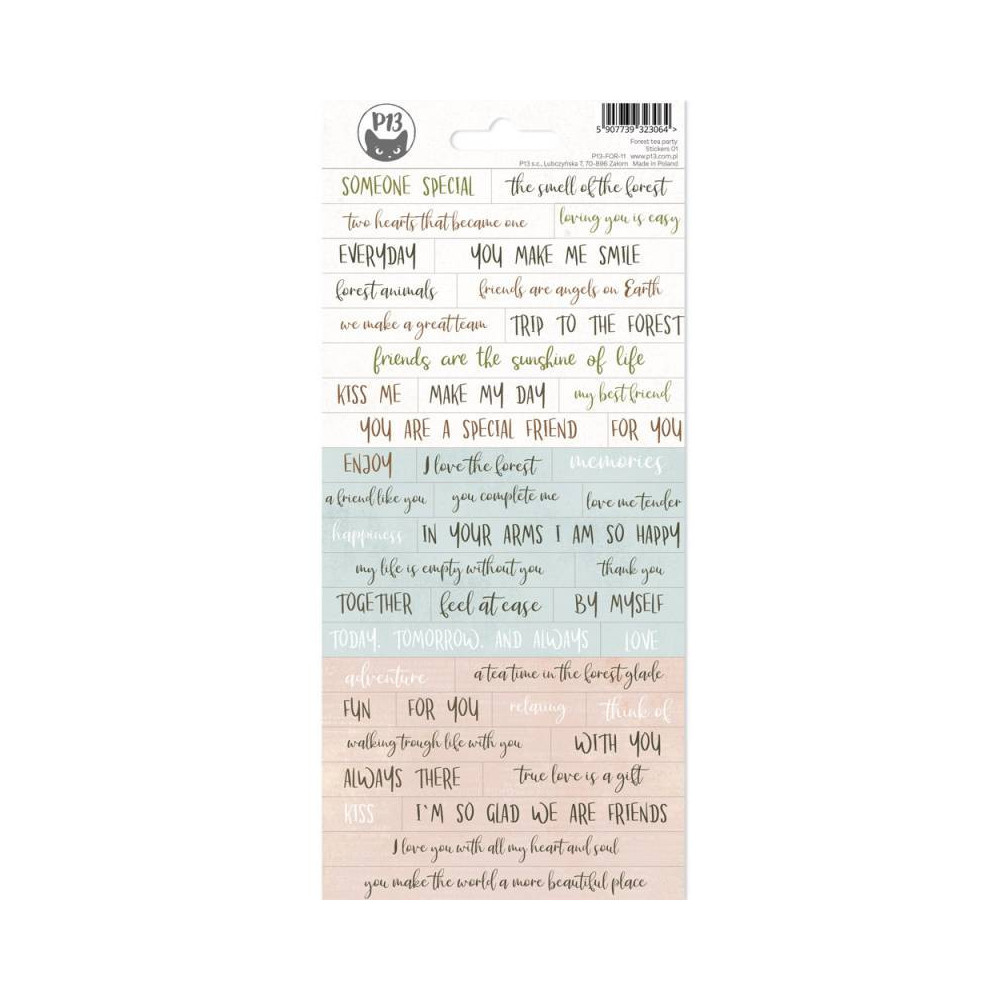 P13
5 907739 323064 >
Forest tea party
Stickers 01
P13-FOR-11 www.p13.com.pl
P13 s.c., Lubczyńska 7, 70-896 Załom Made in Poland
SOMEONE SPECIAL the smell of the forest
two hearts that became one loving you is easy
EVERYDAY YOU MAKE ME SMILE
forest animals friends are angels on Earth
we make a great team TRIP TO THE FOREST
friends are the sunshine of life
KISS ME MAKE MY DAY my best friend
YOU ARE A SPECIAL FRIEND FOR YOU
ENJOY I love the forest memories
a friend like you you complete me love me tender
happiness IN YOUR ARMS I AM SO HAPPY
my life is empty without you thank you
TOGETHER feel at ease BY MYSELF
TODAY, TOMORROW, AND ALWAYS LOVE
adventure a tea time in the forest glade
FUN FOR YOU relaxing think of
walking trough life with you WITH YOU
ALWAYS THERE true love is a gift
KISS I'M SO GLAD WE ARE FRIENDS
I love you with all my heart and soul
you make the world a more beautiful place